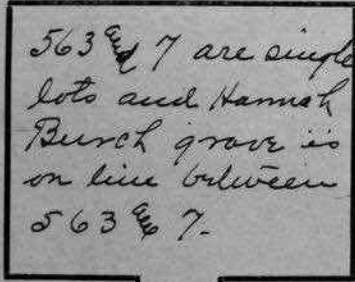 563 and 7 are single
lots and Hannah
Burch grave is
on line between
563 & 7.